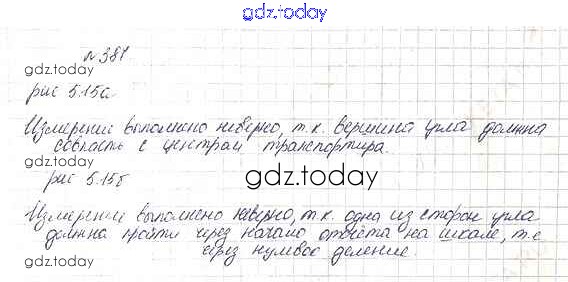 gdz.today
№ 381
gdz.today
рис 5.15а
Измерение выполнено неверно, т.к. вершина угла должна
совпасть с центром транспортира.
gdz.today
рис 5.15б
Измерение выполнено неверно, т.к. одна из сторон угла
должна пройти через начало отсчёта на шкале, т.е
через нулевое деление.
gdz.today